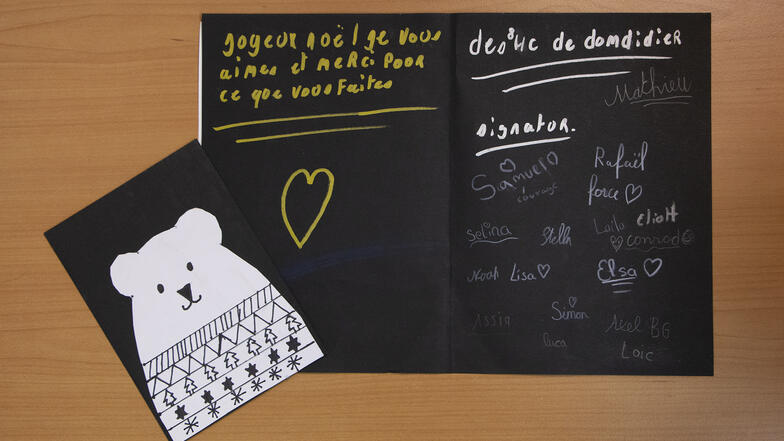 joyeux noël ! je vous
aimes et merci pour
ce que vous faites
des 8HC de domdidier
Mathieu
signator.
Samuel
courage
Rafaël
force
Selina
Stella
Laila
Eliott
conrad
Noah
Lisa
Elsa
Assia
Simon
Axel BG
luca
Loïc